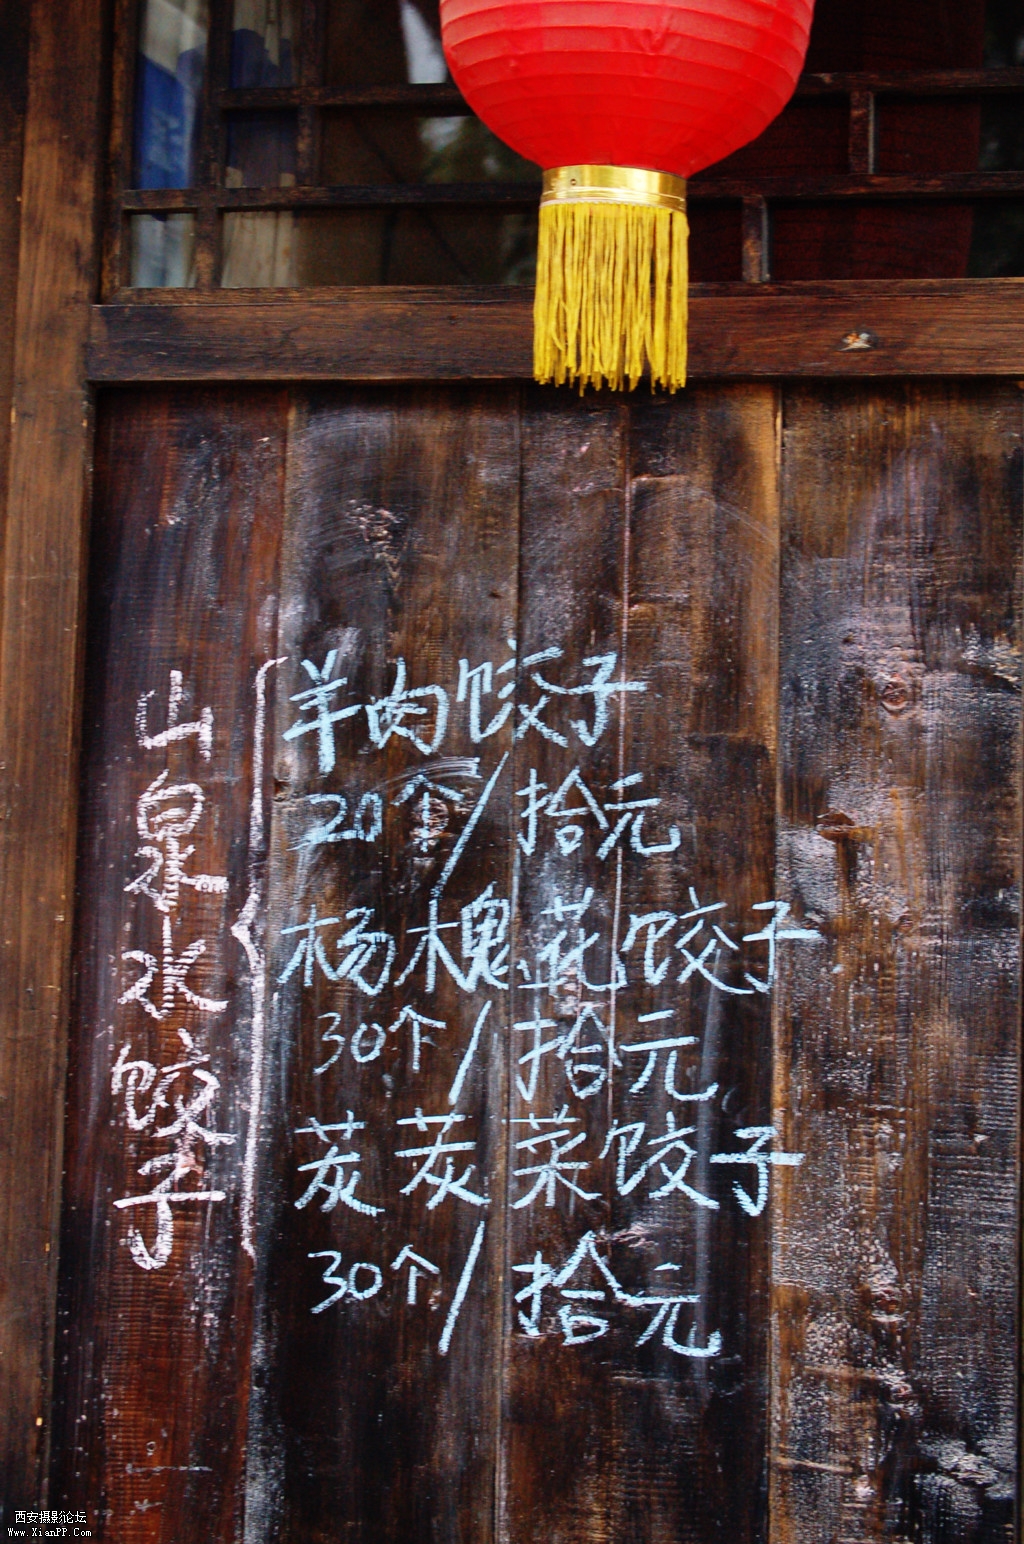 山泉水饺子
羊肉饺子
20个/拾元
杨槐花饺子
30个/拾元
茋茋菜饺子
30个/拾元
西安摄影论坛
Www.XianPP.Com